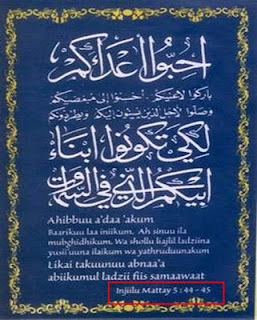 احبّوا أعداءكم
باركوا لاعنيكم. أحسنوا إلى مبغضيكم
وصلّوا لأجل الذين يسيئون إليكم ويطردونكم
لكي تكونوا أبناء
أبيكم الذي في السماوات
Ahibbuu a'daa 'akum
Baarikuu laa iniikum. Ah sinuu ila
mubghidhikum. Wa shollu liajlil ladziina
yusii'uuna ilaikum wa yathruduunakum
Likai takuunuu abnaa'a
abiikumul ladzii fiis samaawaat
Injiilu Mattay 5 : 44 - 45